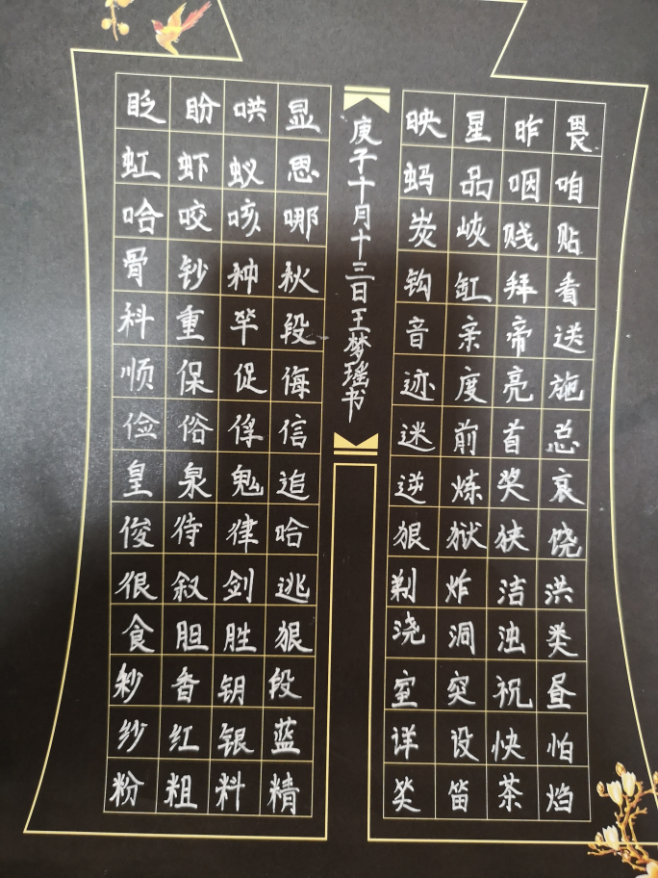 眨盼哄显
虹虾蚁思
哈咬咳哪
骨钞种秋
科重竿段
顺保促侮
俭俗俘信
皇泉鬼追
俊待律哈
很叙剑逃
食胆胜狠
秒香钥段
纱红银蓝
粉粗料精
庚子十月十三日王梦瑶书
映星昨畏
蚂品咽咱
炭峡贱贴
钩缸拜看
音亲帝送
迹度亮施
迷前首总
逆炼奖哀
狠狱狭饶
剃炸洁洪
浇洞浊类
室突祝昼
详设快怕
笛茶焰